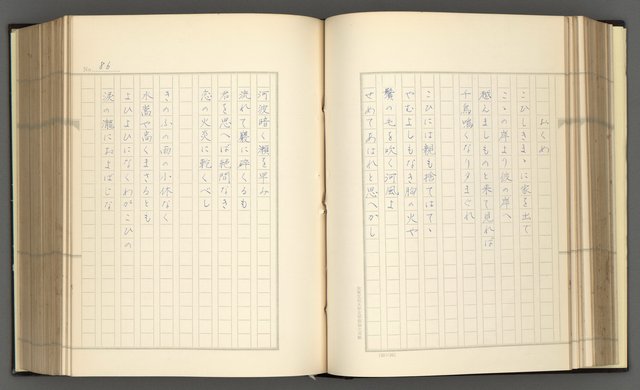 おくめ
こひしきまゝに家を出で
こゝの岸より彼の岸へ
越えましものと来て見れば
千鳥鳴くなり夕まぐれ
こひには親も捨てはてゝ
やむよしもなき胸の火や
鬢の毛を吹く河風よ
せめてあはれと思へかし
河波暗く瀬を早み
流れて巌に砕くるも
君を思へば絶間なき
恋の火炎に乾くべし
きのふの雨の小休なく
水嵩や高くまさるとも
よひよひになくわがこひの
涙の瀧におよばじな
No. 86